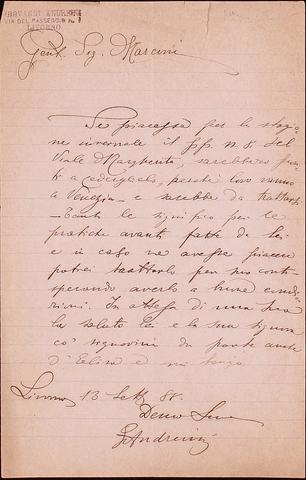 GIOVANNI ANDREINI
VIA DEL PASSEGGIO N. 1
LIVORNO
Gent. Sig. Marcini
Se piacesse per la stagio
ne invernale il pp. n. 8 del
Viale Margherita, sarebbero
ti a cederglielo, perchè loro vanno
a Venezia e sarebbe da trattarsi
le significo per le
pratiche avanti fatte da lei
e in caso ne avesse piacere
potrei trattarlo per suo conto
sperando averlo a buone condi
zioni. In attesa di una sua
la saluto lei e la sua signora
co' signorini da parte anche
d'Elisa e mi
Livorno 13 Sett. 8
Devmo Servo
GAndreini